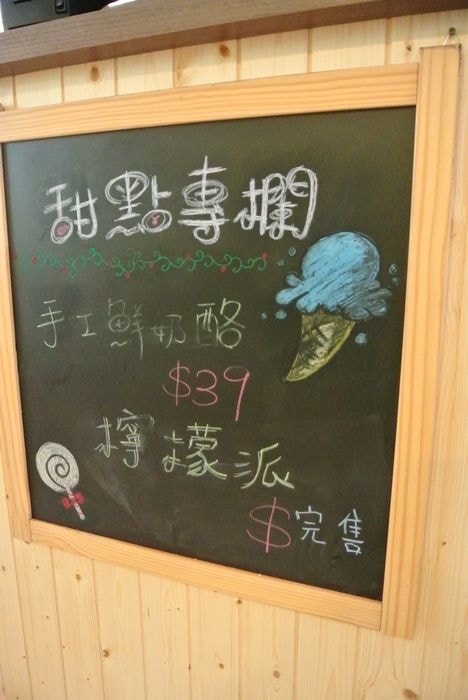 甜點專欄
手工鮮奶酪
$39
檸檬派
$完售